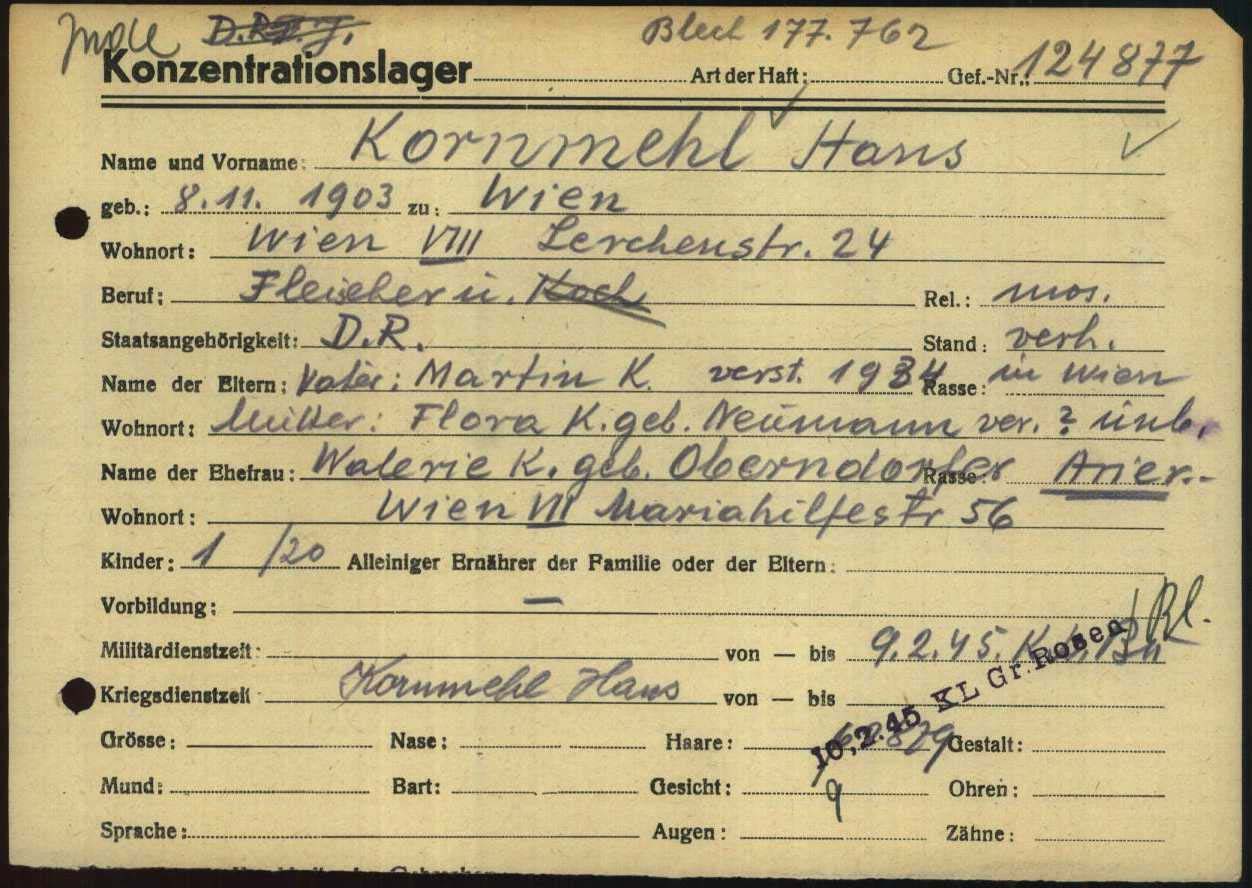 Jude D.R.
Blech 177.762
Konzentrationslager Art der Haft: Gef.-Nr.: 124877
Name und Vorname: Kornmehl Hans
geb.: 8.11. 1903 zu: Wien
Wohnort: Wien VIII Lerchenstr. 24
Beruf: Fleischer u. Koch Rel.: mos.
Staatsangehörigkeit: D.R. Stand: verh.
Name der Eltern: Vater: Martin K. verst. 1934 Rasse: in Wien
Wohnort: Mutter: Flora K. geb. Neumann ver. ? unb.
Name der Ehefrau: Walerie K. geb. Oberndorfer Rasse: Arier.
Wohnort: Wien VII Mariahilfestr 56
Kinder: 1 /20 Alleiniger Ernährer der Familie oder der Eltern:
Vorbildung: —
Militärdienstzeit: von — bis 9.2.45. K.L. Bu
Kriegsdienstzeit Kornmehl Hans von — bis
10.2.45 KL Gr. Rosen
Grösse: Nase: Haare: Gestalt:
Mund: Bart: Gesicht: 9 Ohren:
Sprache: Augen: Zähne: